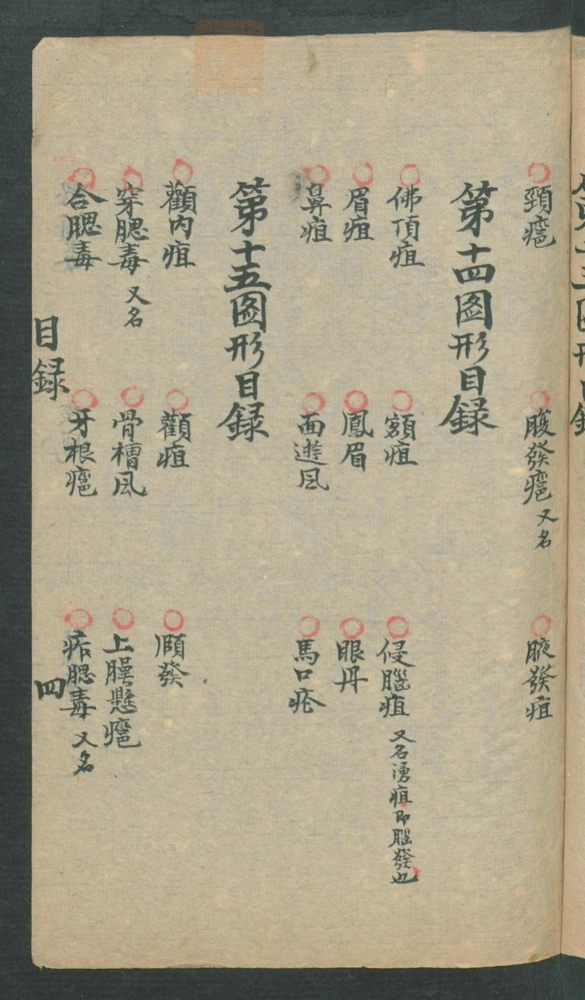 頸癰 腹發癰 又名 腋發疽
第十四圖形目録
佛頂疽 額疽 侵腦疽 又名湧疽即腦發也
眉疽 鳳眉 眼丹
鼻疽 面遊风 馬口疮
第十五圖形目録
顴内疽 顴疽 頤發
穿腮毒 又名 骨槽风 上腭懸癰
合腮毒 牙根癰 痄腮毒 又名
目録 四